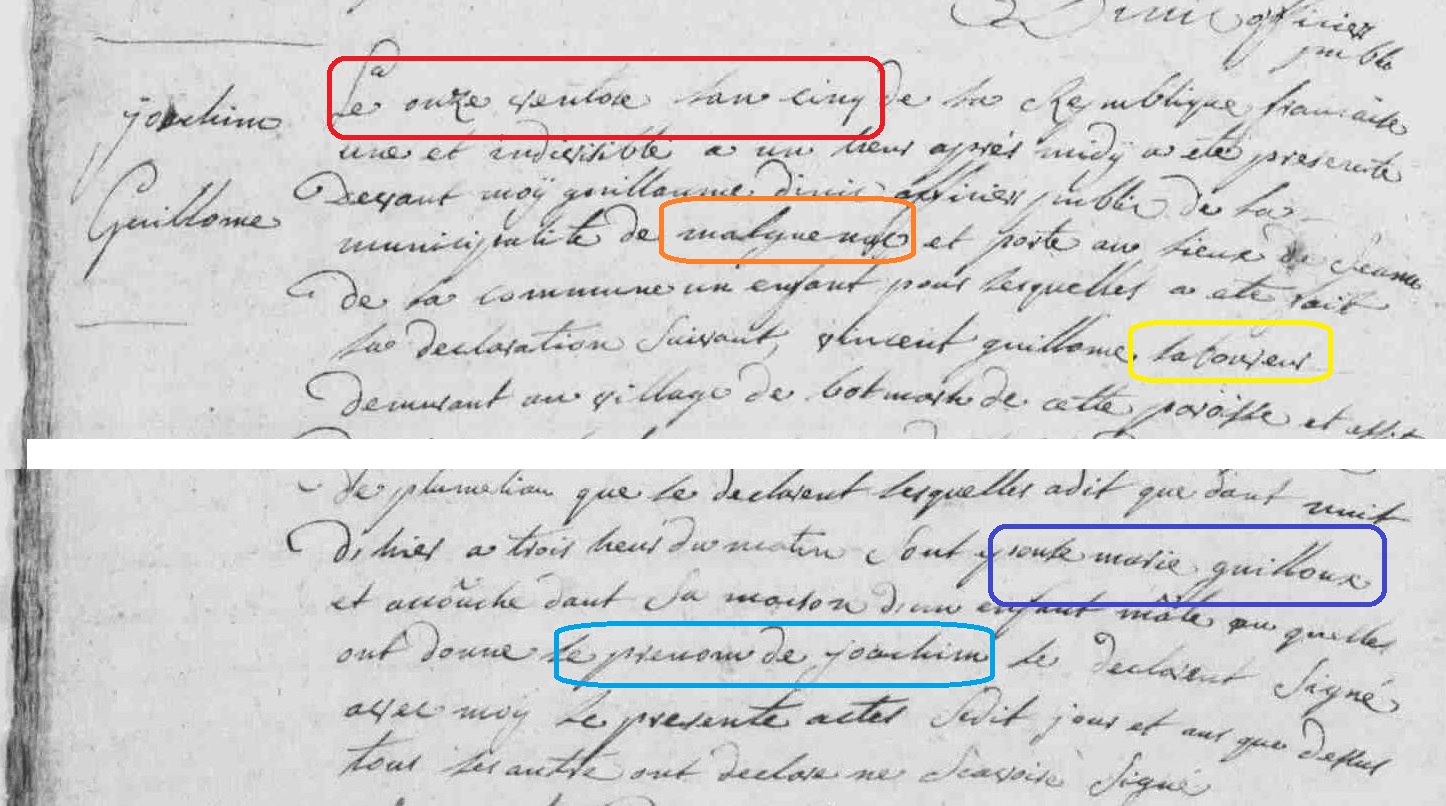 Dinic officier
public
Le onze ventose lan cinq de la Republique francaise
une et indivisible a un heur apprés midÿ a eté presenté
joachim
Devant moÿ guillaume dinic officier public de la
Guillome
municipalité de malguenac et porte au lieux de Seance
De la commune un enfant pour lesquelles a eté fait
la declaration Suivant, vincent guillome laboureur
Demurant au village de botmar de cette paroisse et
de plumeliau que le declarent lesquelles adit que dant nuit
D'hier a trois heur du matin Sont marie guilloux
et accouché dant Sa maison d'un enfant mâle au quelles
ont donne le prenom de joachim le declarent Signé
avec moÿ le presente actes Sudit jour et ans que Dessus
tous les autre ont declare ne Scavoire Signé